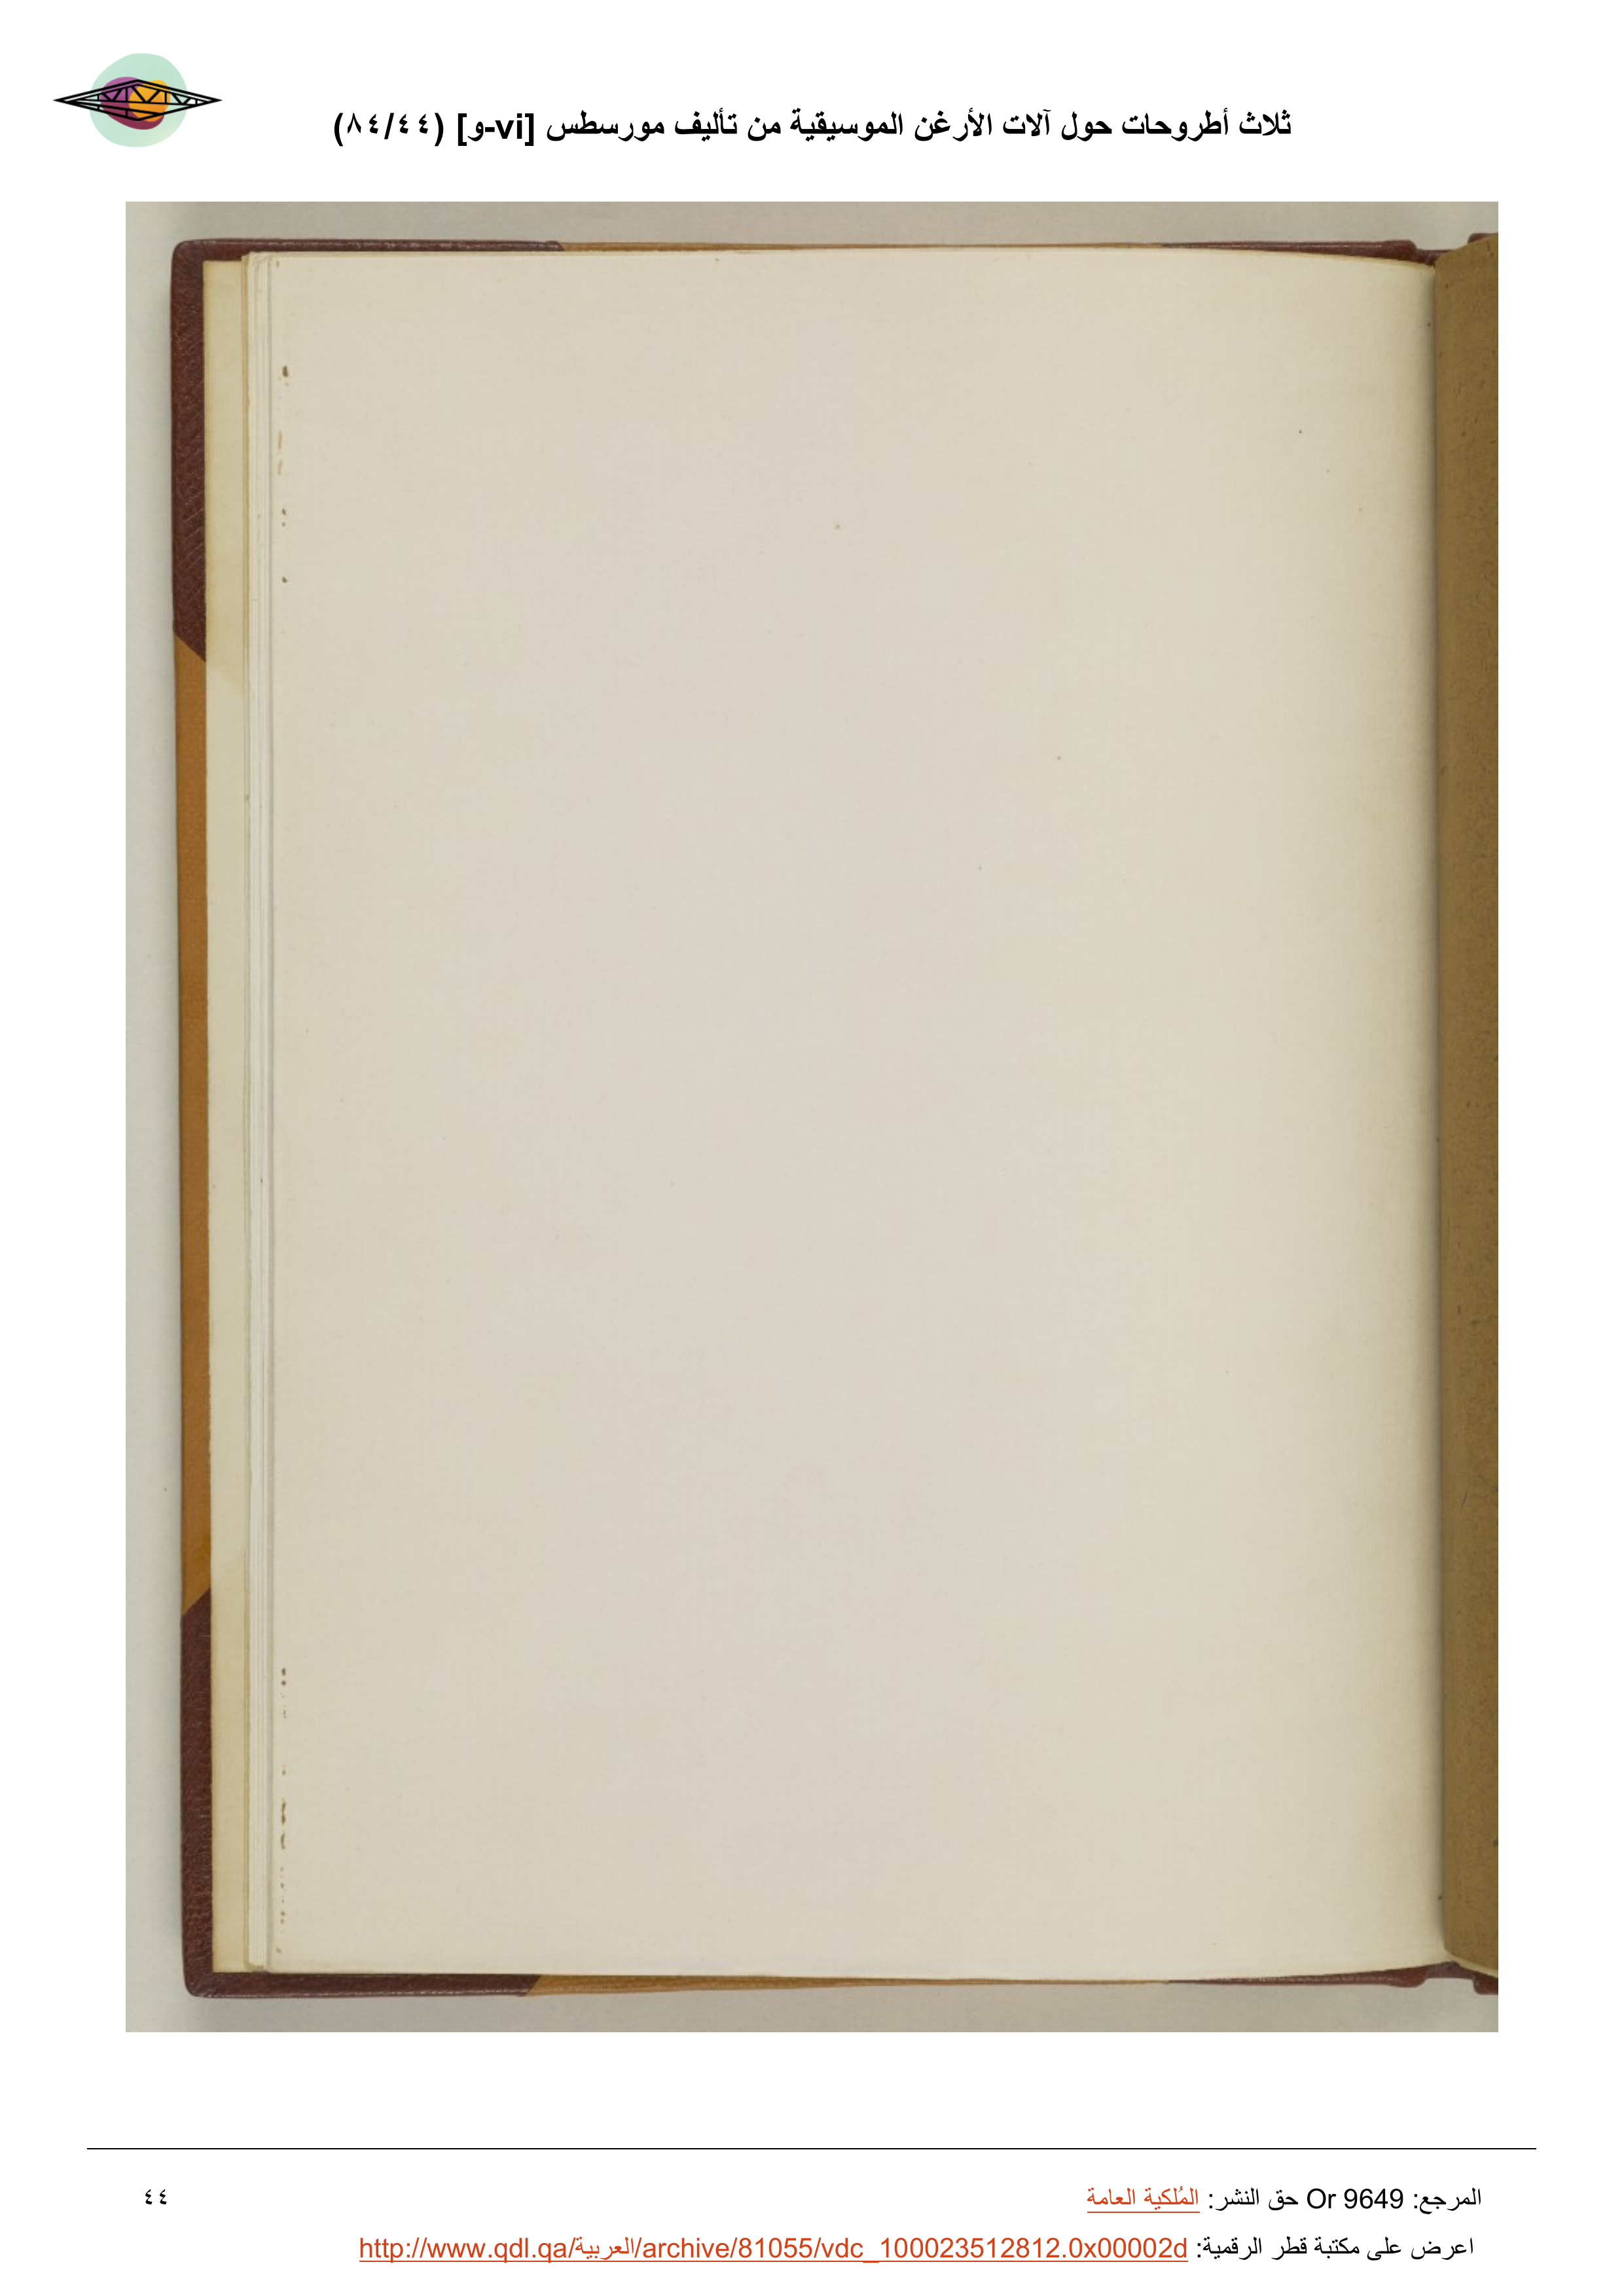 ثلاث أطروحات حول آلات الأرغن الموسيقية من تأليف مورسطس [vi-و] (٨٤/٤٤)
المرجع: Or 9649 حق النشر: المُلكية العامة
٤٤
اعرض على مكتبة قطر الرقمية: http://www.qdl.qa/العربية/archive/81055/vdc_100023512812.0x00002d